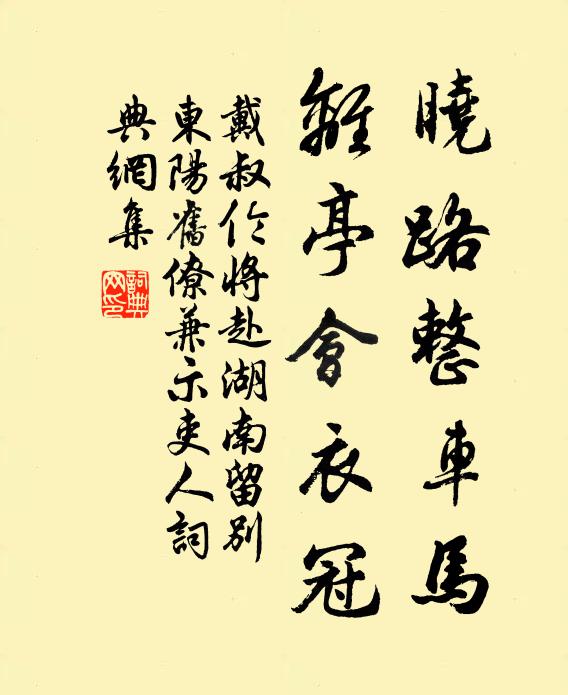 曉路整車馬
離亭會衣冠
戴叔伦將赴湖南留別
東陽舊僚兼示吏人詞
典網集
詞典網印